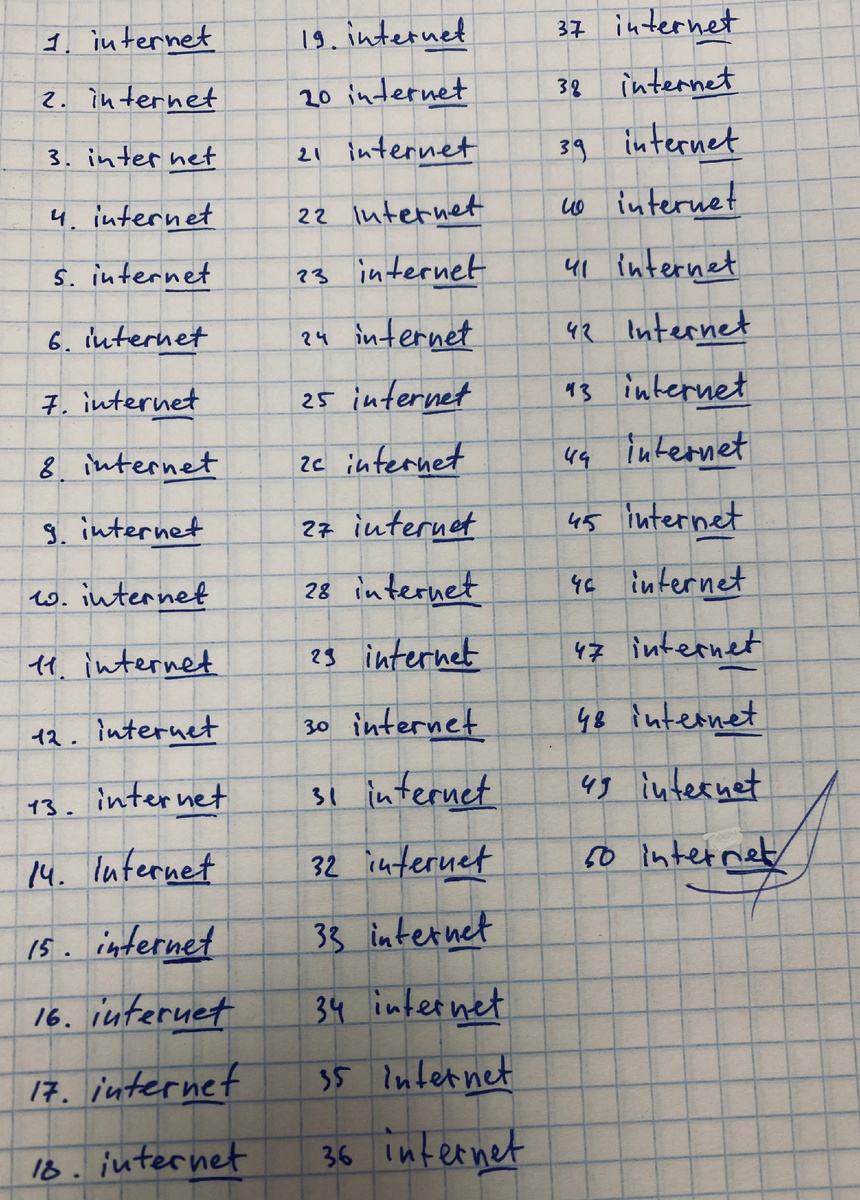 1. internet
2. internet
3. internet
4. internet
5. internet
6. internet
7. internet
8. internet
9. internet
10. internet
11. internet
12. internet
13. internet
14. Internet
15. internet
16. internet
17. internet
18. internet
19. internet
20 internet
21 internet
22 Internet
23 internet
24 internet
25 internet
26 internet
27 internet
28 internet
29 internet
30 internet
31 internet
32 internet
33 internet
34 internet
35 Internet
36 internet
37 internet
38 internet
39 internet
40 internet
41 internet
42 Internet
43 internet
44 internet
45 internet
46 internet
47 internet
48 internet
49 internet
50 internet